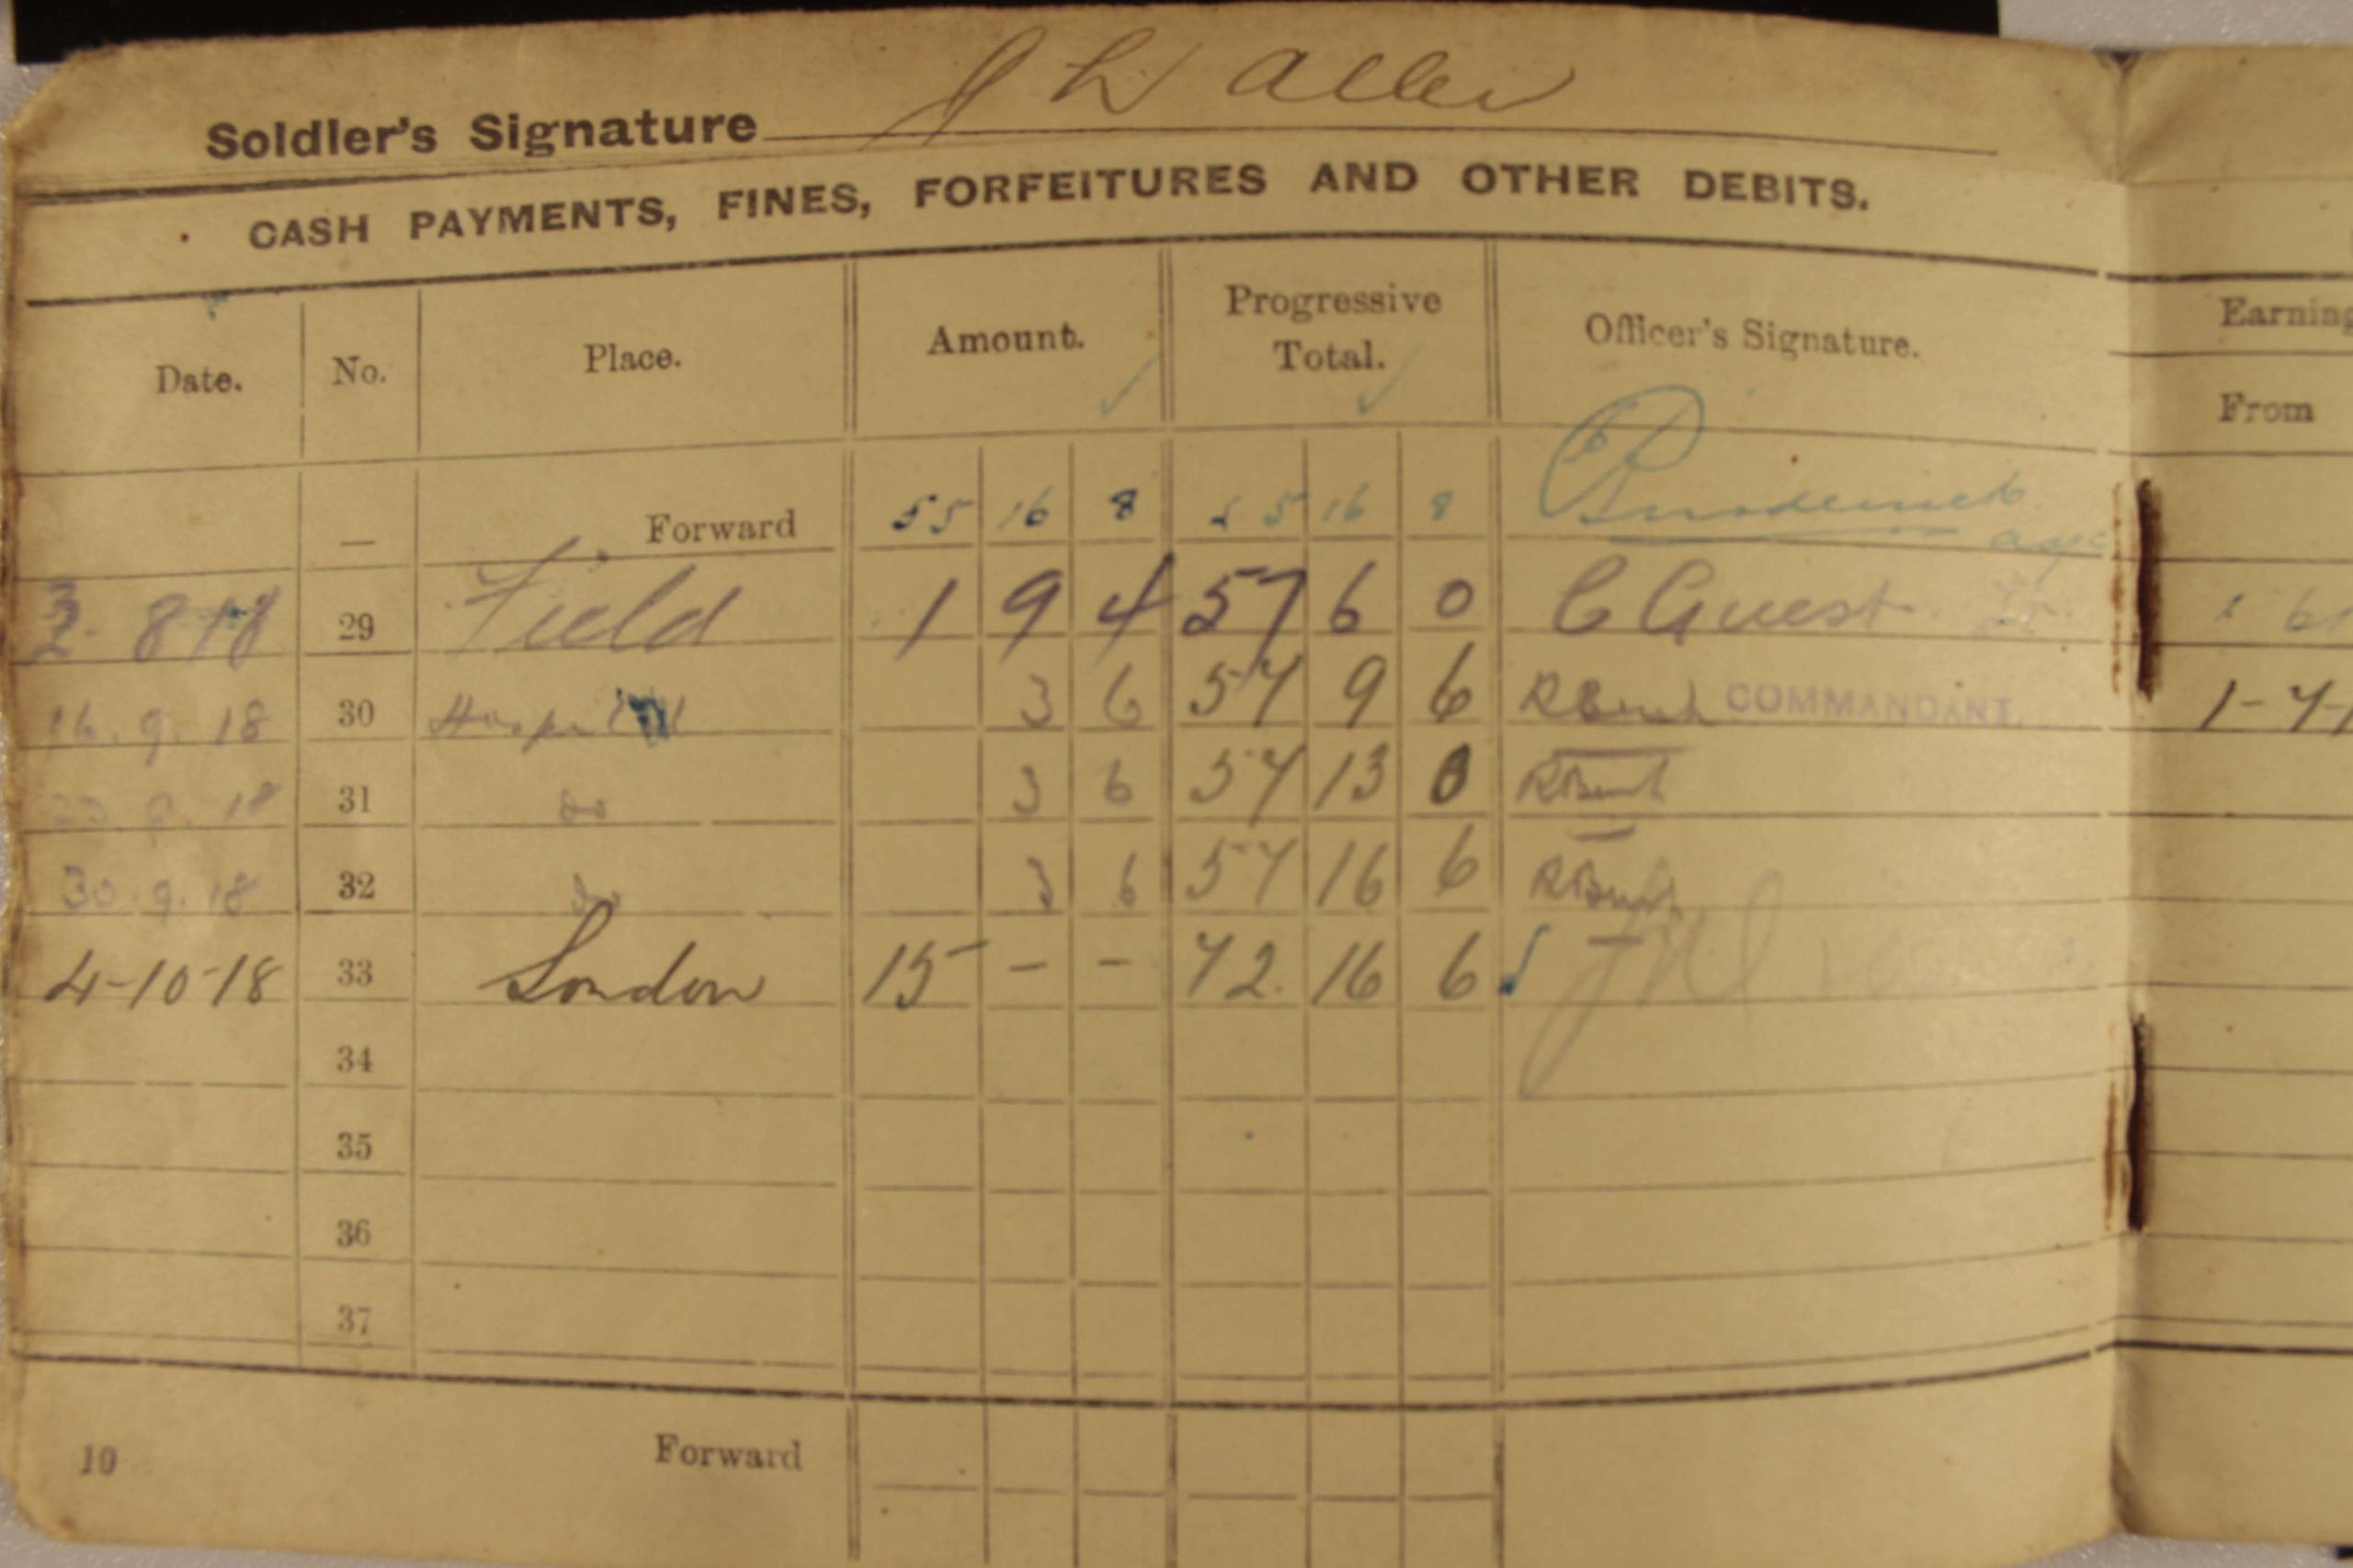 Soldier's Signature J L Allen
CASH PAYMENTS, FINES, FORFEITURES AND OTHER DEBITS.
Date. No. Place. Amount. Progressive Total. Officer's Signature.
— Forward 55 16 8 55 16 8
8 18 29 Field 1 9 4 57 6 0 C Guest
16.9.18 30 Hospital 3 6 57 9 6 COMMANDANT.
18 31 do 3 6 57 13 0
30.9.18 32 do 3 6 57 16 6
4-10-18 33 London 15 - - 72. 16 6
34
35
36
37
10 Forward
Earning
From
1-7-1